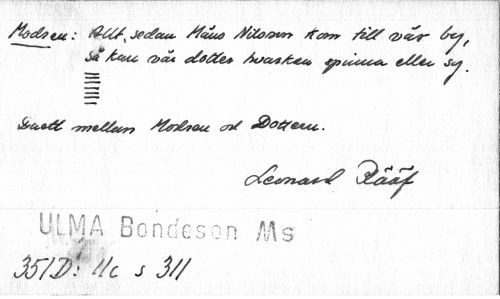 Modren: Allt, sedan Måns Nilsson kom till vår by,
så kan vår dotter hvarken spinna eller sy.
Duett mellan Modren och Dottern.
Leonard Rääf
ULMA Bondeson Ms
351D: 11c s 311